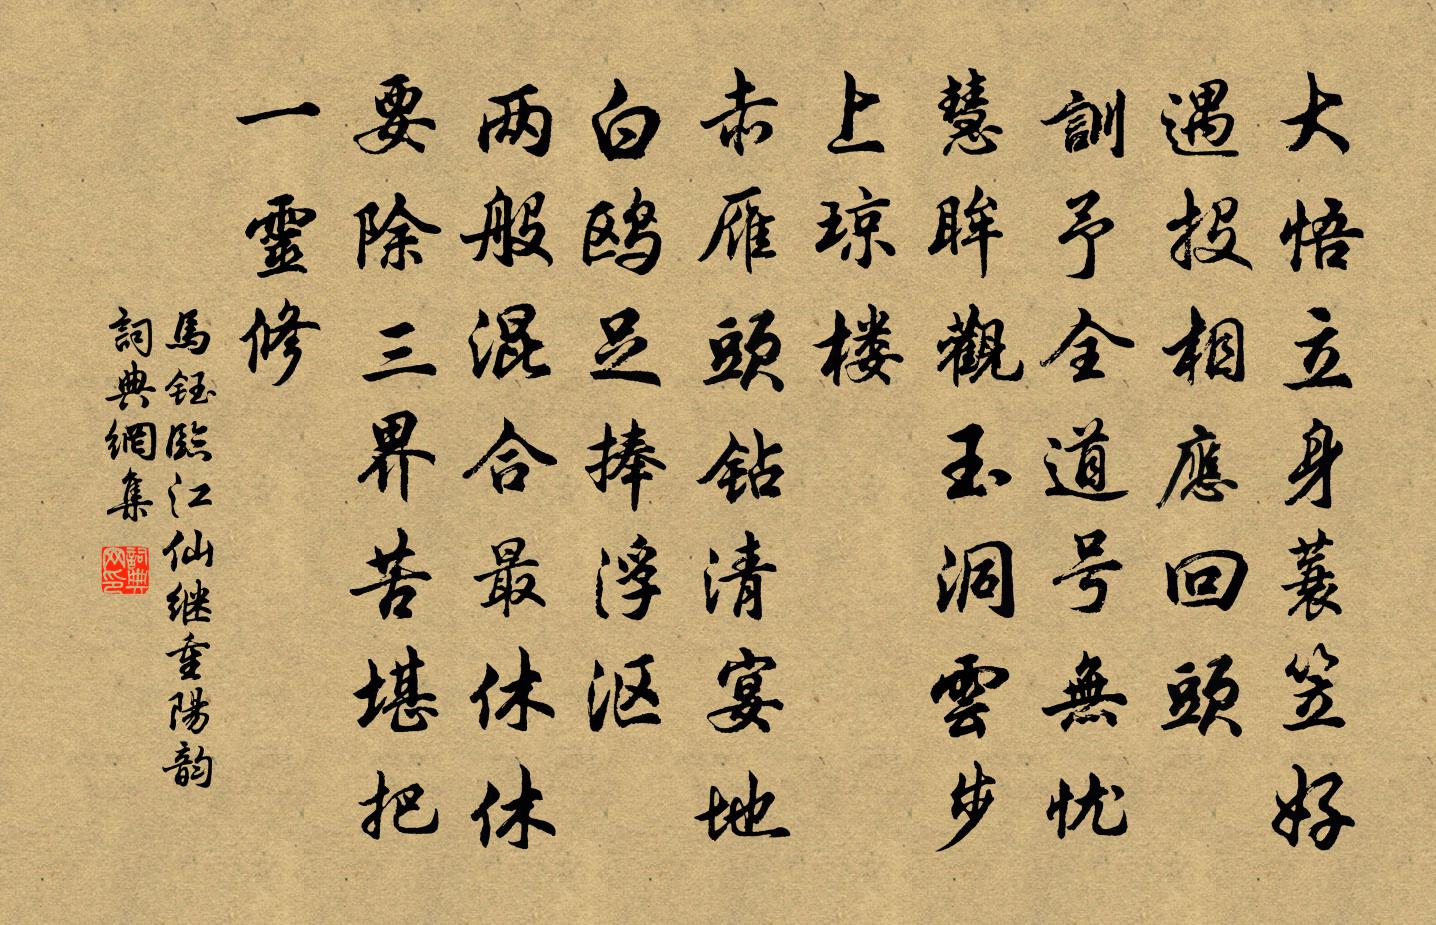 大悟立身蓑笠好
遇投相應回頭
訓予全道号無忧
慧眸觀玉洞雲步
上琼楼
赤雁頭钻清宴地
白鸥足捧浮沤
两般混合最休休
要除三界苦堪把
一靈修
馬钰臨江仙继重陽韵
詞典網集
詞典
网印